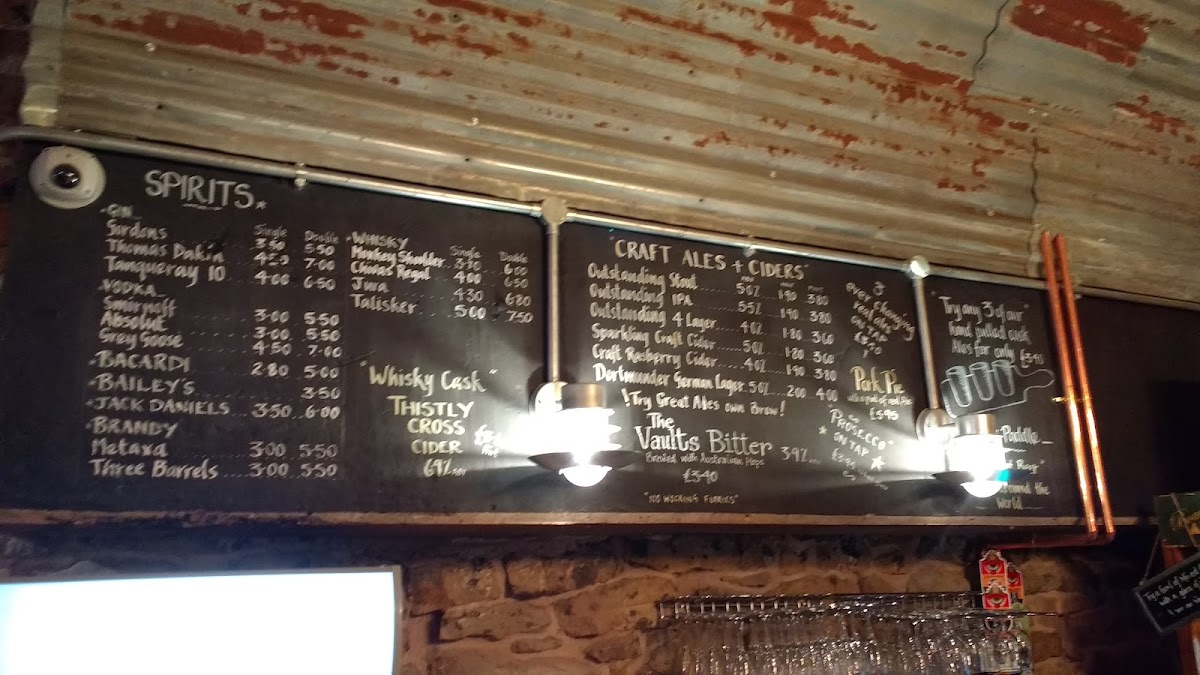 SPIRITS
GIN
Single Double
Gordons 3.50 5.50
Thomas Dakin 7.00
Tanqueray 10 4.00 6.50
VODKA
Smirnoff 3.00 5.50
Absolut 3.00 5.50
Grey Goose 4.50 7.00
BACARDI 2.80 5.00
BAILEY'S 3.50
JACK DANIELS 3.50 6.00
BRANDY
Metaxa 3.00 5.50
Three Barrels 3.00 5.50
WHISKY
Single Double
Monkey Shoulder 6.00
Chivas Regal 4.00 6.50
Jura 4.30 6.80
Talisker 5.00 7.50
"Whisky Cask"
THISTLY
CROSS
CIDER
"CRAFT ALES + CIDERS"
Outstanding Stout 5.0% 1.90 3.80
Outstanding IPA 5.5% 1.90 3.80
Outstanding 4 Lager 4.0% 1.80 3.60
Sparkling Craft Cider 5.0% 1.80 3.60
Craft Rasberry Cider 4.0% 1.90 3.80
Dortmunder German Lager 5.0% 2.00 4.00
!Try Great Ales own Brew!
The
Vaults Bitter 3.9%
Brewed with Australian Hops
£3.40
3
Ever Changing
real ales
on pump
Pork Pie
with a pint of real Ale
£5.95
PROSECCO
ON TAP
"Try any 3 of our"
hand pulled cask
Ales for only £3.40
"Paddle
Round the
World